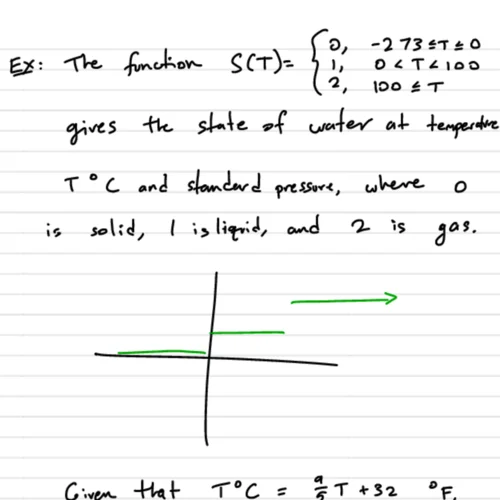 Ex: The function S(T)= { 0, -273≤T≤0
1, 0<T<100
2, 100≤T
gives the state of water at temperature
T°C and standard pressure, where 0
is solid, 1 is liquid, and 2 is gas.
Given that T°C = 9/5 T +32 °F,